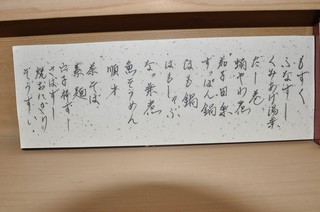 もずく
ふなずし
くみあげ湯葉
だし巻
蛸やわ煮
茄子田楽
すっぽん鍋
はも鍋
はもしゃぶ
魚そうめん
順才
茶そば
素麺
穴子棒ずし
さばずし
焼おにぎり
ぞうすい